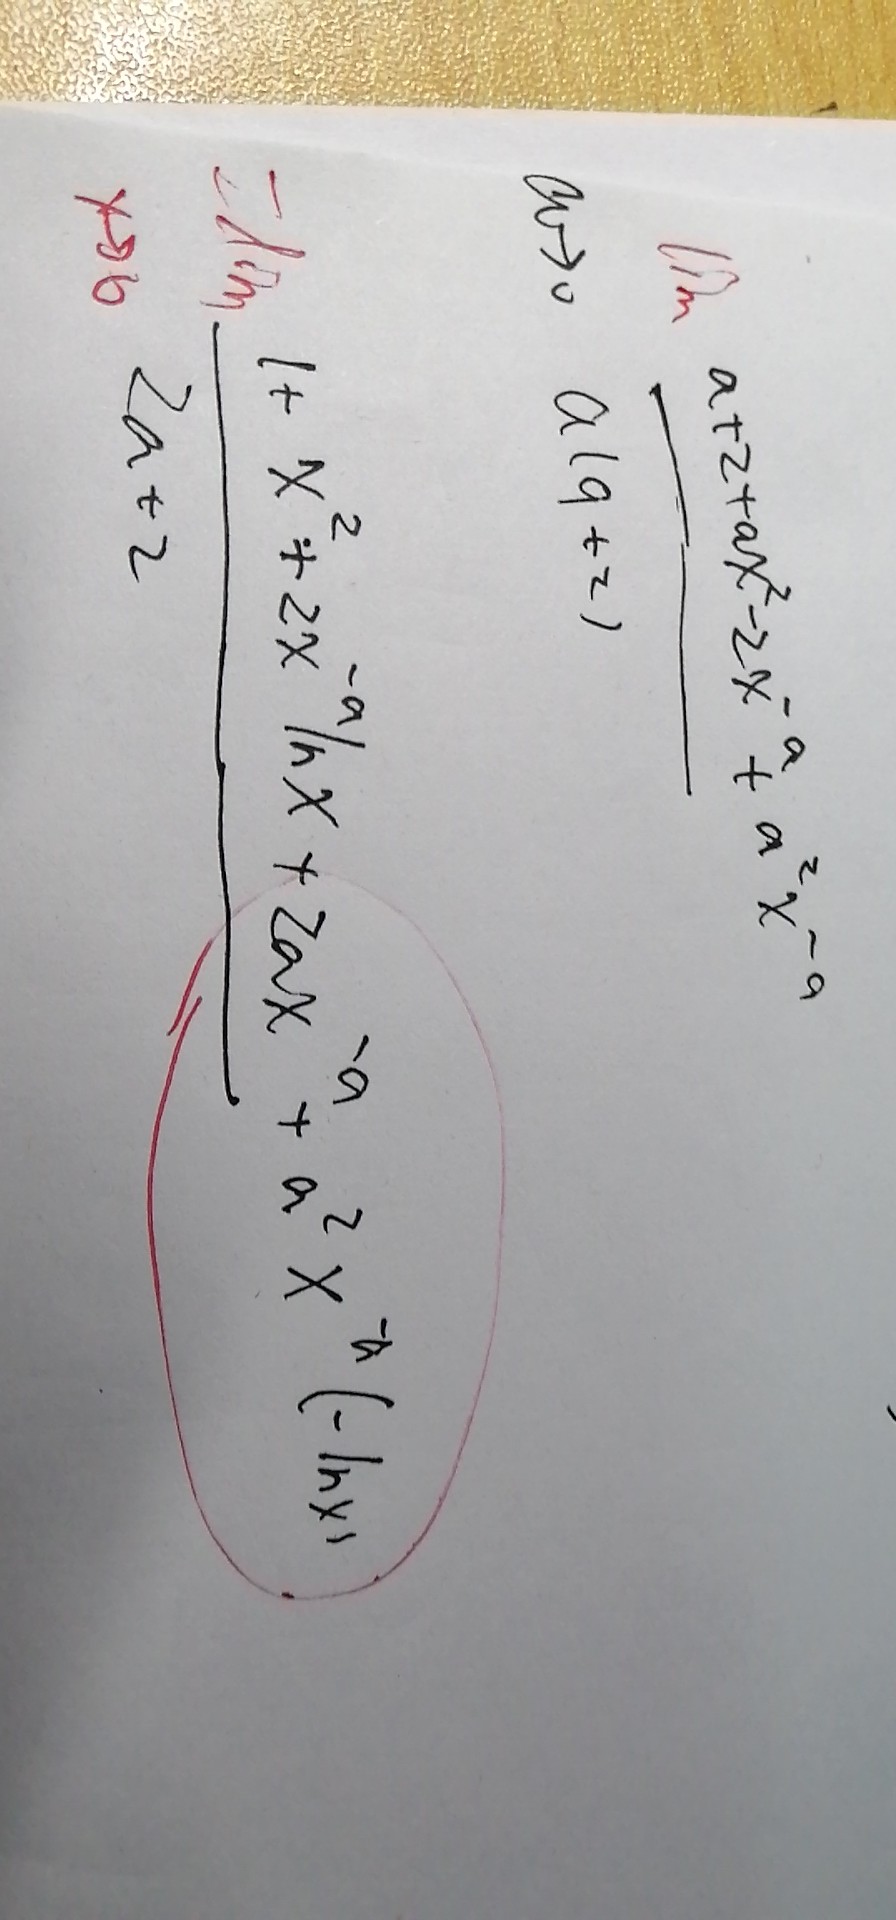 lim a+2+ax²-2x⁻ᵃ + a²x⁻ᵃ
a→0 a(a+2)
=lim 1+ x²+2x⁻ᵃlnx + 2ax⁻ᵃ + a²x⁻ᵃ(-lnx)
2a+2